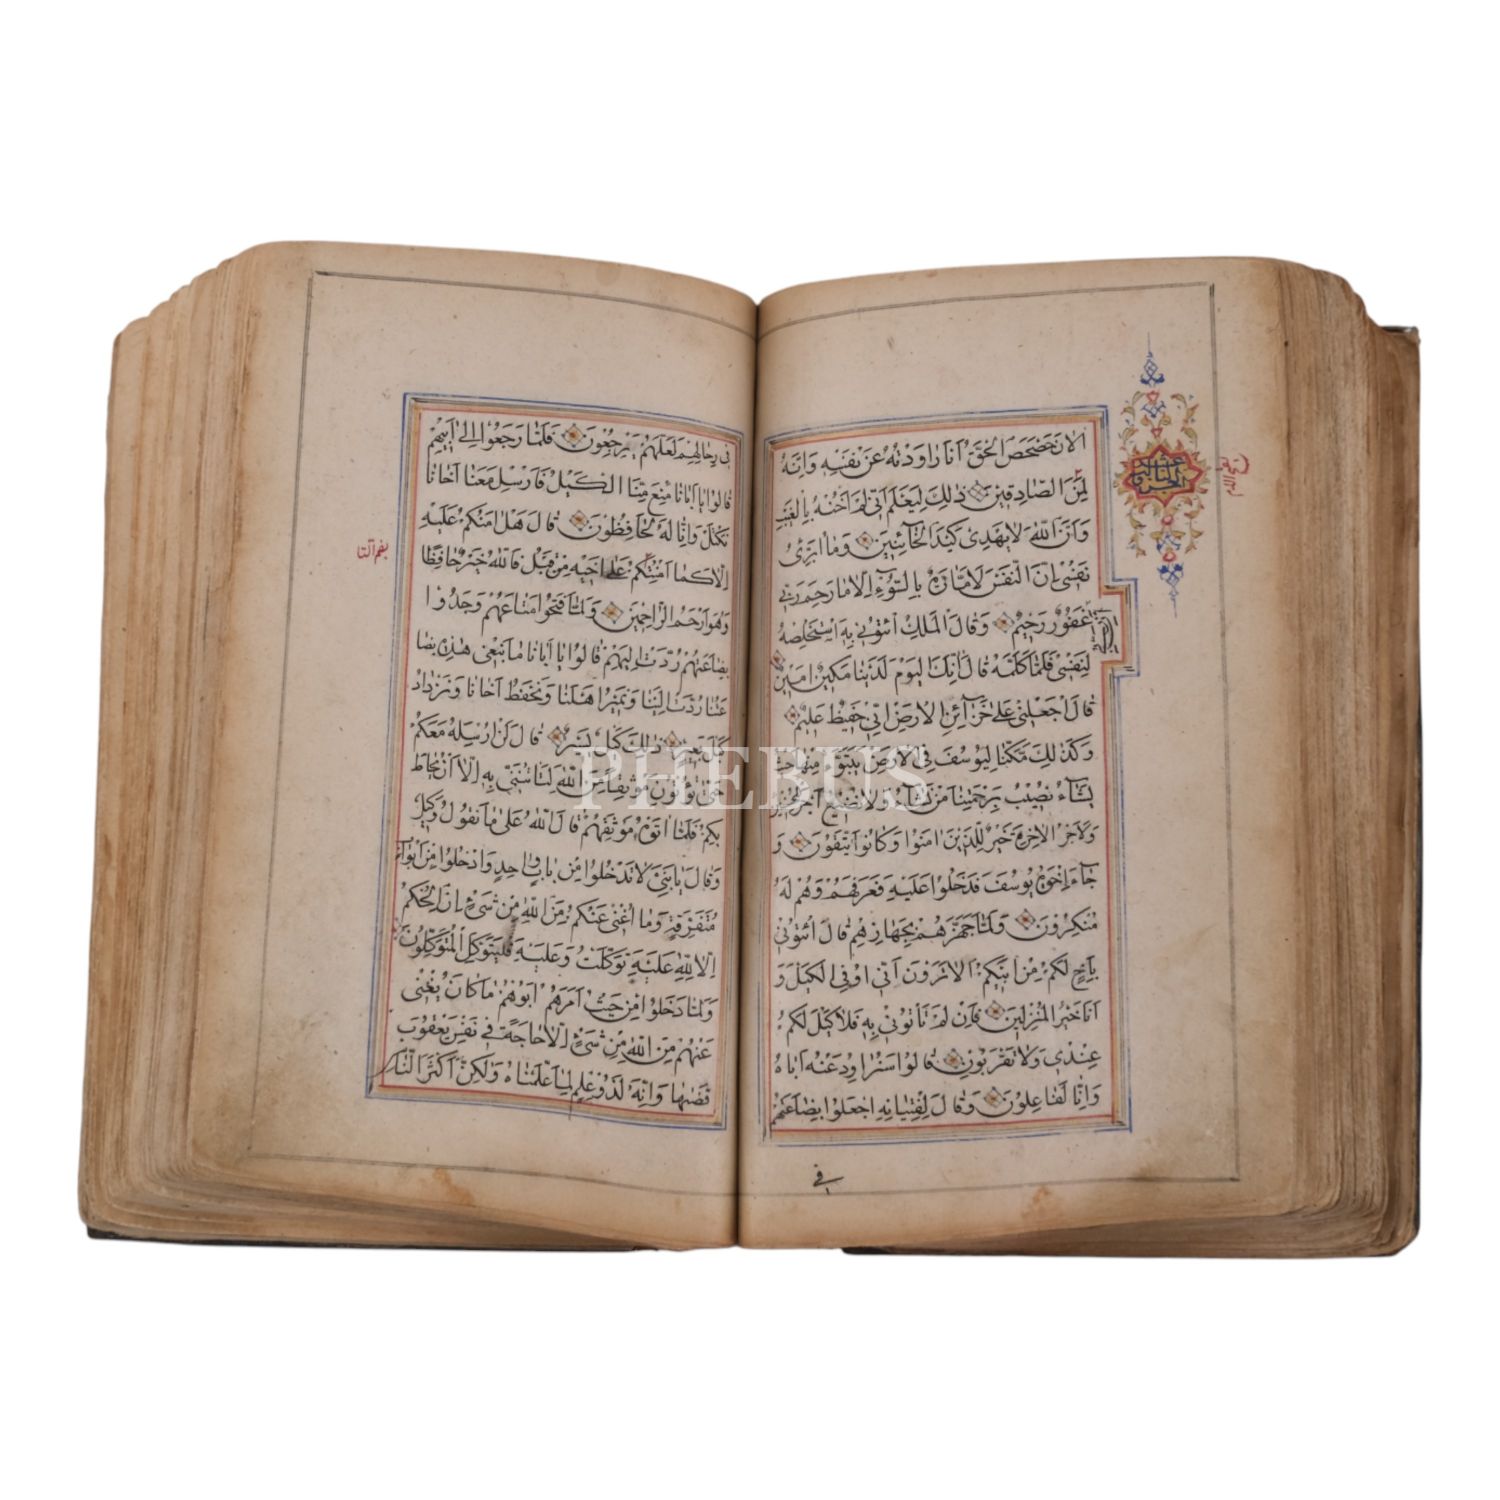 الجزء الثالث عشر
الان حصحص الحق انا راودته عن نفسه وانه
لمن الصادقين ذلك ليعلم انى لم اخنه بالغيب
وان الله لا يهدى كيد الخآئنين وما ابرئ
نفسى ان النفس لامارة بالسوء الا ما رحم ربى
غفور رحيم وقال الملك ائتونى به استخلصه
لنفسى فلما كلمه قال انك اليوم لدينا مكين امين
قال اجعلنى على خزآئن الارض انى حفيظ عليم
وكذلك مكنا ليوسف فى الارض يتبوء منها حيث
يشآء نصيب برحمتنا من نشآء ولا نضيع اجر
ولاجر الاخرة خير للذين امنوا وكانوا يتقون و
جآء اخوة يوسف فدخلوا عليه فعرفهم وهم له
منكرون ولما جهزهم بجهازهم قال ائتونى
باخ لكم من ابيكم الا ترون انى اوفى الكيل و
انا خير المنزلين فان لم تاتونى به فلا كيل لكم
عندى ولا تقربون قالوا سنراود عنه اباه
وانا لفاعلون وقال لفتيانه اجعلوا بضاعتهم
فى
فى رحالهم لعلهم يرجعون فلما رجعوا الى ابيهم
قالوا يا ابانا منع منا الكيل فارسل معنا اخانا
نكتل وانا له لحافظون قال هل امنكم عليه
الا كما امنتكم على اخيه من قبل فالله خير حافظا
وهو ارحم الراحمين ولما فتحوا متاعهم وجدوا
بضاعتهم ردت اليهم قالوا يا ابانا ما نبغى هذه بضا
عتنا ردت الينا ونمير اهلنا ونحفظ اخانا ونزداد
كيل بعير ذلك كيل يسير قال لن ارسله معكم
حتى تؤتون موثقا من الله لتاتننى به الا ان يحاط
بكم فلما اتوه موثقهم قال الله على ما نقول وكيل
وقال يا بنى لا تدخلوا من باب واحد وادخلوا من ابواب
متفرقة وما اغنى عنكم من الله من شىء ان الحكم
الا لله عليه توكلت وعليه فليتوكل المتوكلون
ولما دخلوا من حيث امرهم ابوهم ما كان يغنى
عنهم من الله من شىء الا حاجة فى نفس يعقوب
قضيها وانه لذو علم لما علمناه ولكن اكثر الناس
PHEBUS